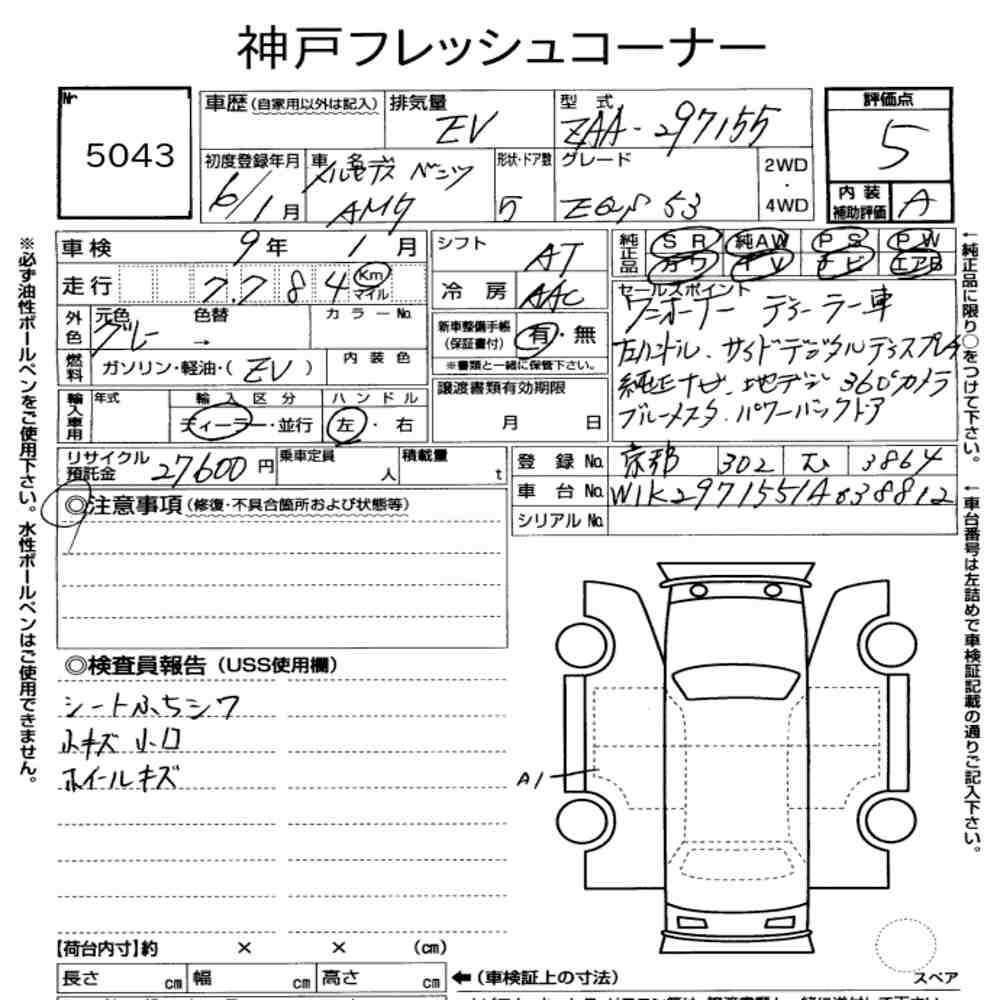 神戸フレッシュコーナー
Nr 5043
車歴(自家用以外は記入)
排気量 EV
型式 ZAA-297155
評価点 5
内装補助評価 A
初度登録年月 6/1月
車名 メルセデス ベンツ AMG
形状・ドア数 5
グレード EQS 53
2WD・4WD
※必ず油性ボールペンをご使用下さい。水性ボールペンはご使用できません。
車検 9年 1月
走行 7.784 Km マイル
外色 元色 グレー 色替 →
カラーNo.
燃料 ガソリン・軽油・( EV )
内装色
輸入車用 年式
輸入区分 ディーラー・並行
ハンドル 左・右
シフト AT
冷房 AAC
新車整備手帳(保証書付) 有・無
※書類と一緒に保管下さい。
譲渡書類有効期限
月 日
純正品 SR 純AW PS PW
カワ TV ナビ エアB
セールスポイント
ワンオーナー ディーラー車
左ハンドル、サイドデジタルディスプレイ
純正ナビ、地デジ 360°カメラ
ブルーメスタ、パワーバックドア
←純正品に限り○をつけて下さい。
リサイクル預託金 27600円
乗車定員 人
積載量 t
登録No. 京都 302 3864
車台No. W1K2971551A038812
シリアルNo.
←車台番号は左詰めで車検証記載の通りご記入下さい。
◎注意事項(修復・不具合箇所および状態等)
◎検査員報告(USS使用欄)
シートふちシワ
小キズ 小凹
ホイールキズ
A1
【荷台内寸】約 × × (cm)
長さ cm 幅 cm 高さ cm ←(車検証上の寸法)
スペア